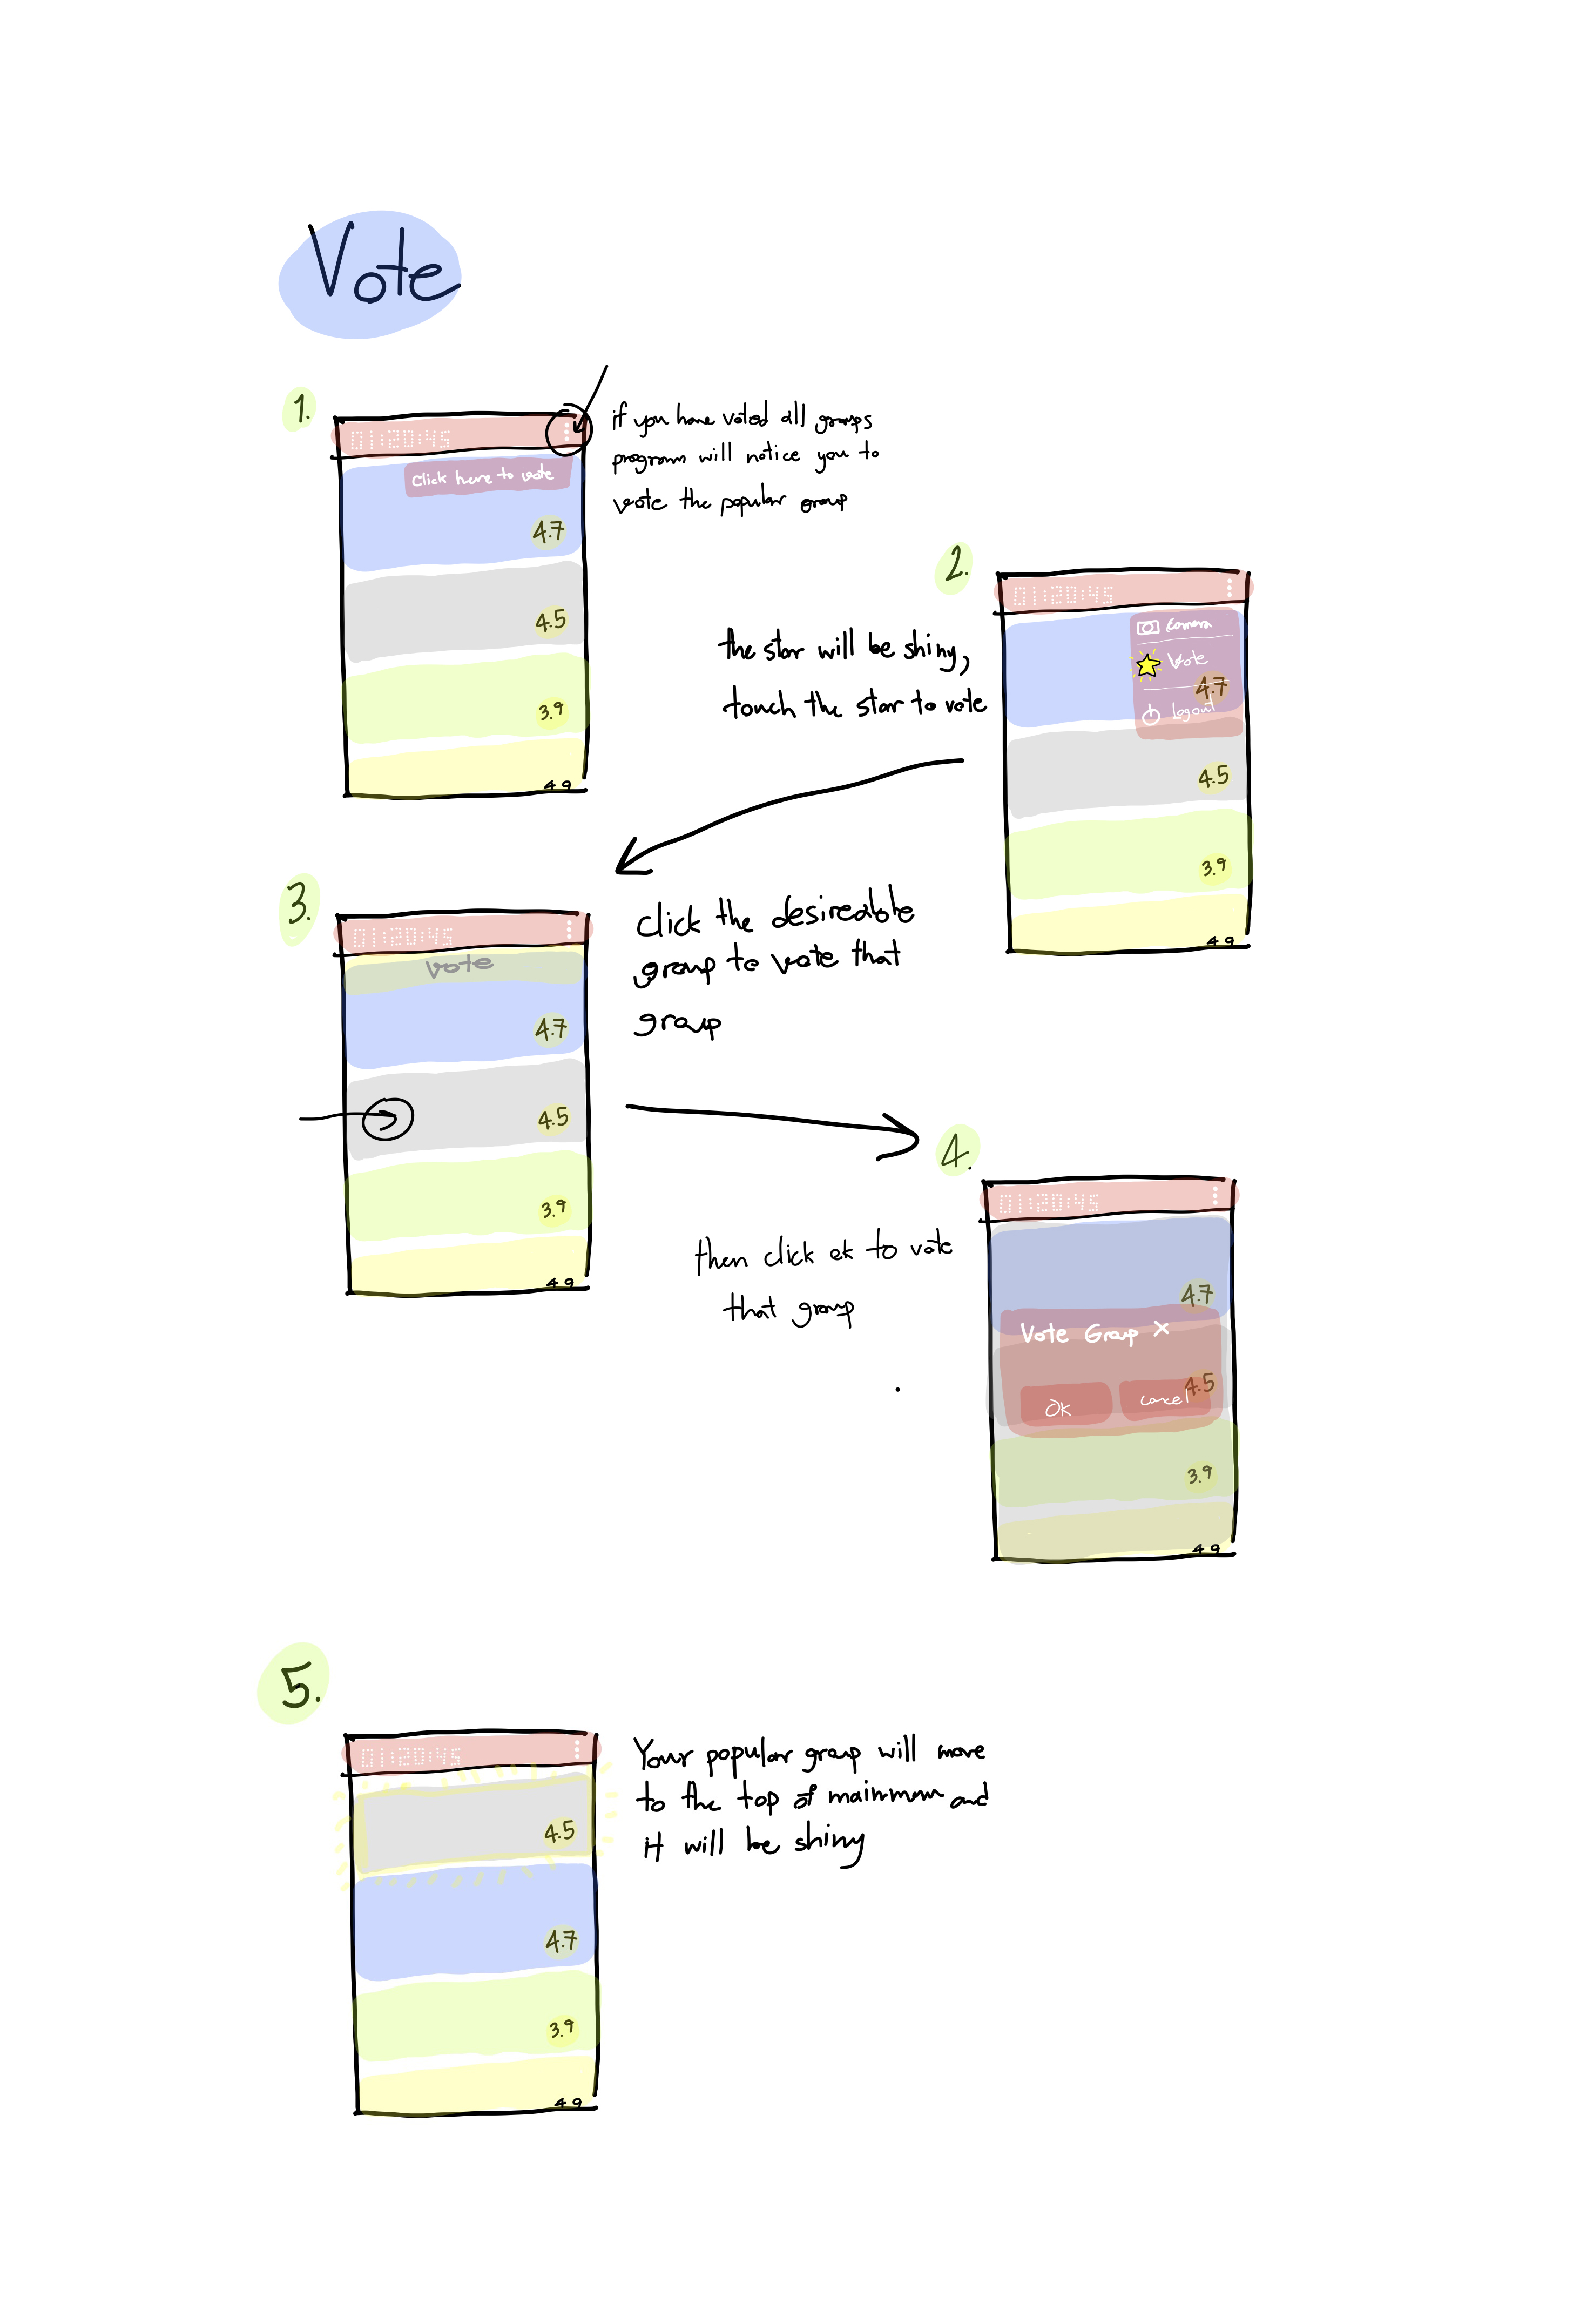 Vote
1.
01:20:45
Click here to vote
4.7
4.5
3.9
4.9
if you have voted all groups
program will notice you to
vote the popular group
2.
01:20:45
Camera
Vote
4.7
Logout
4.5
3.9
4.9
the star will be shiny,
touch the star to vote
3.
01:20:45
vote
4.7
4.5
3.9
4.9
click the desireable
group to vote that
group
4.
01:20:45
4.7
Vote Group X
4.5
Ok
cancel
3.9
4.9
then click ok to vote
that group
5.
01:20:45
4.5
4.7
3.9
4.9
Your popular group will move
to the top of and
it will be shiny